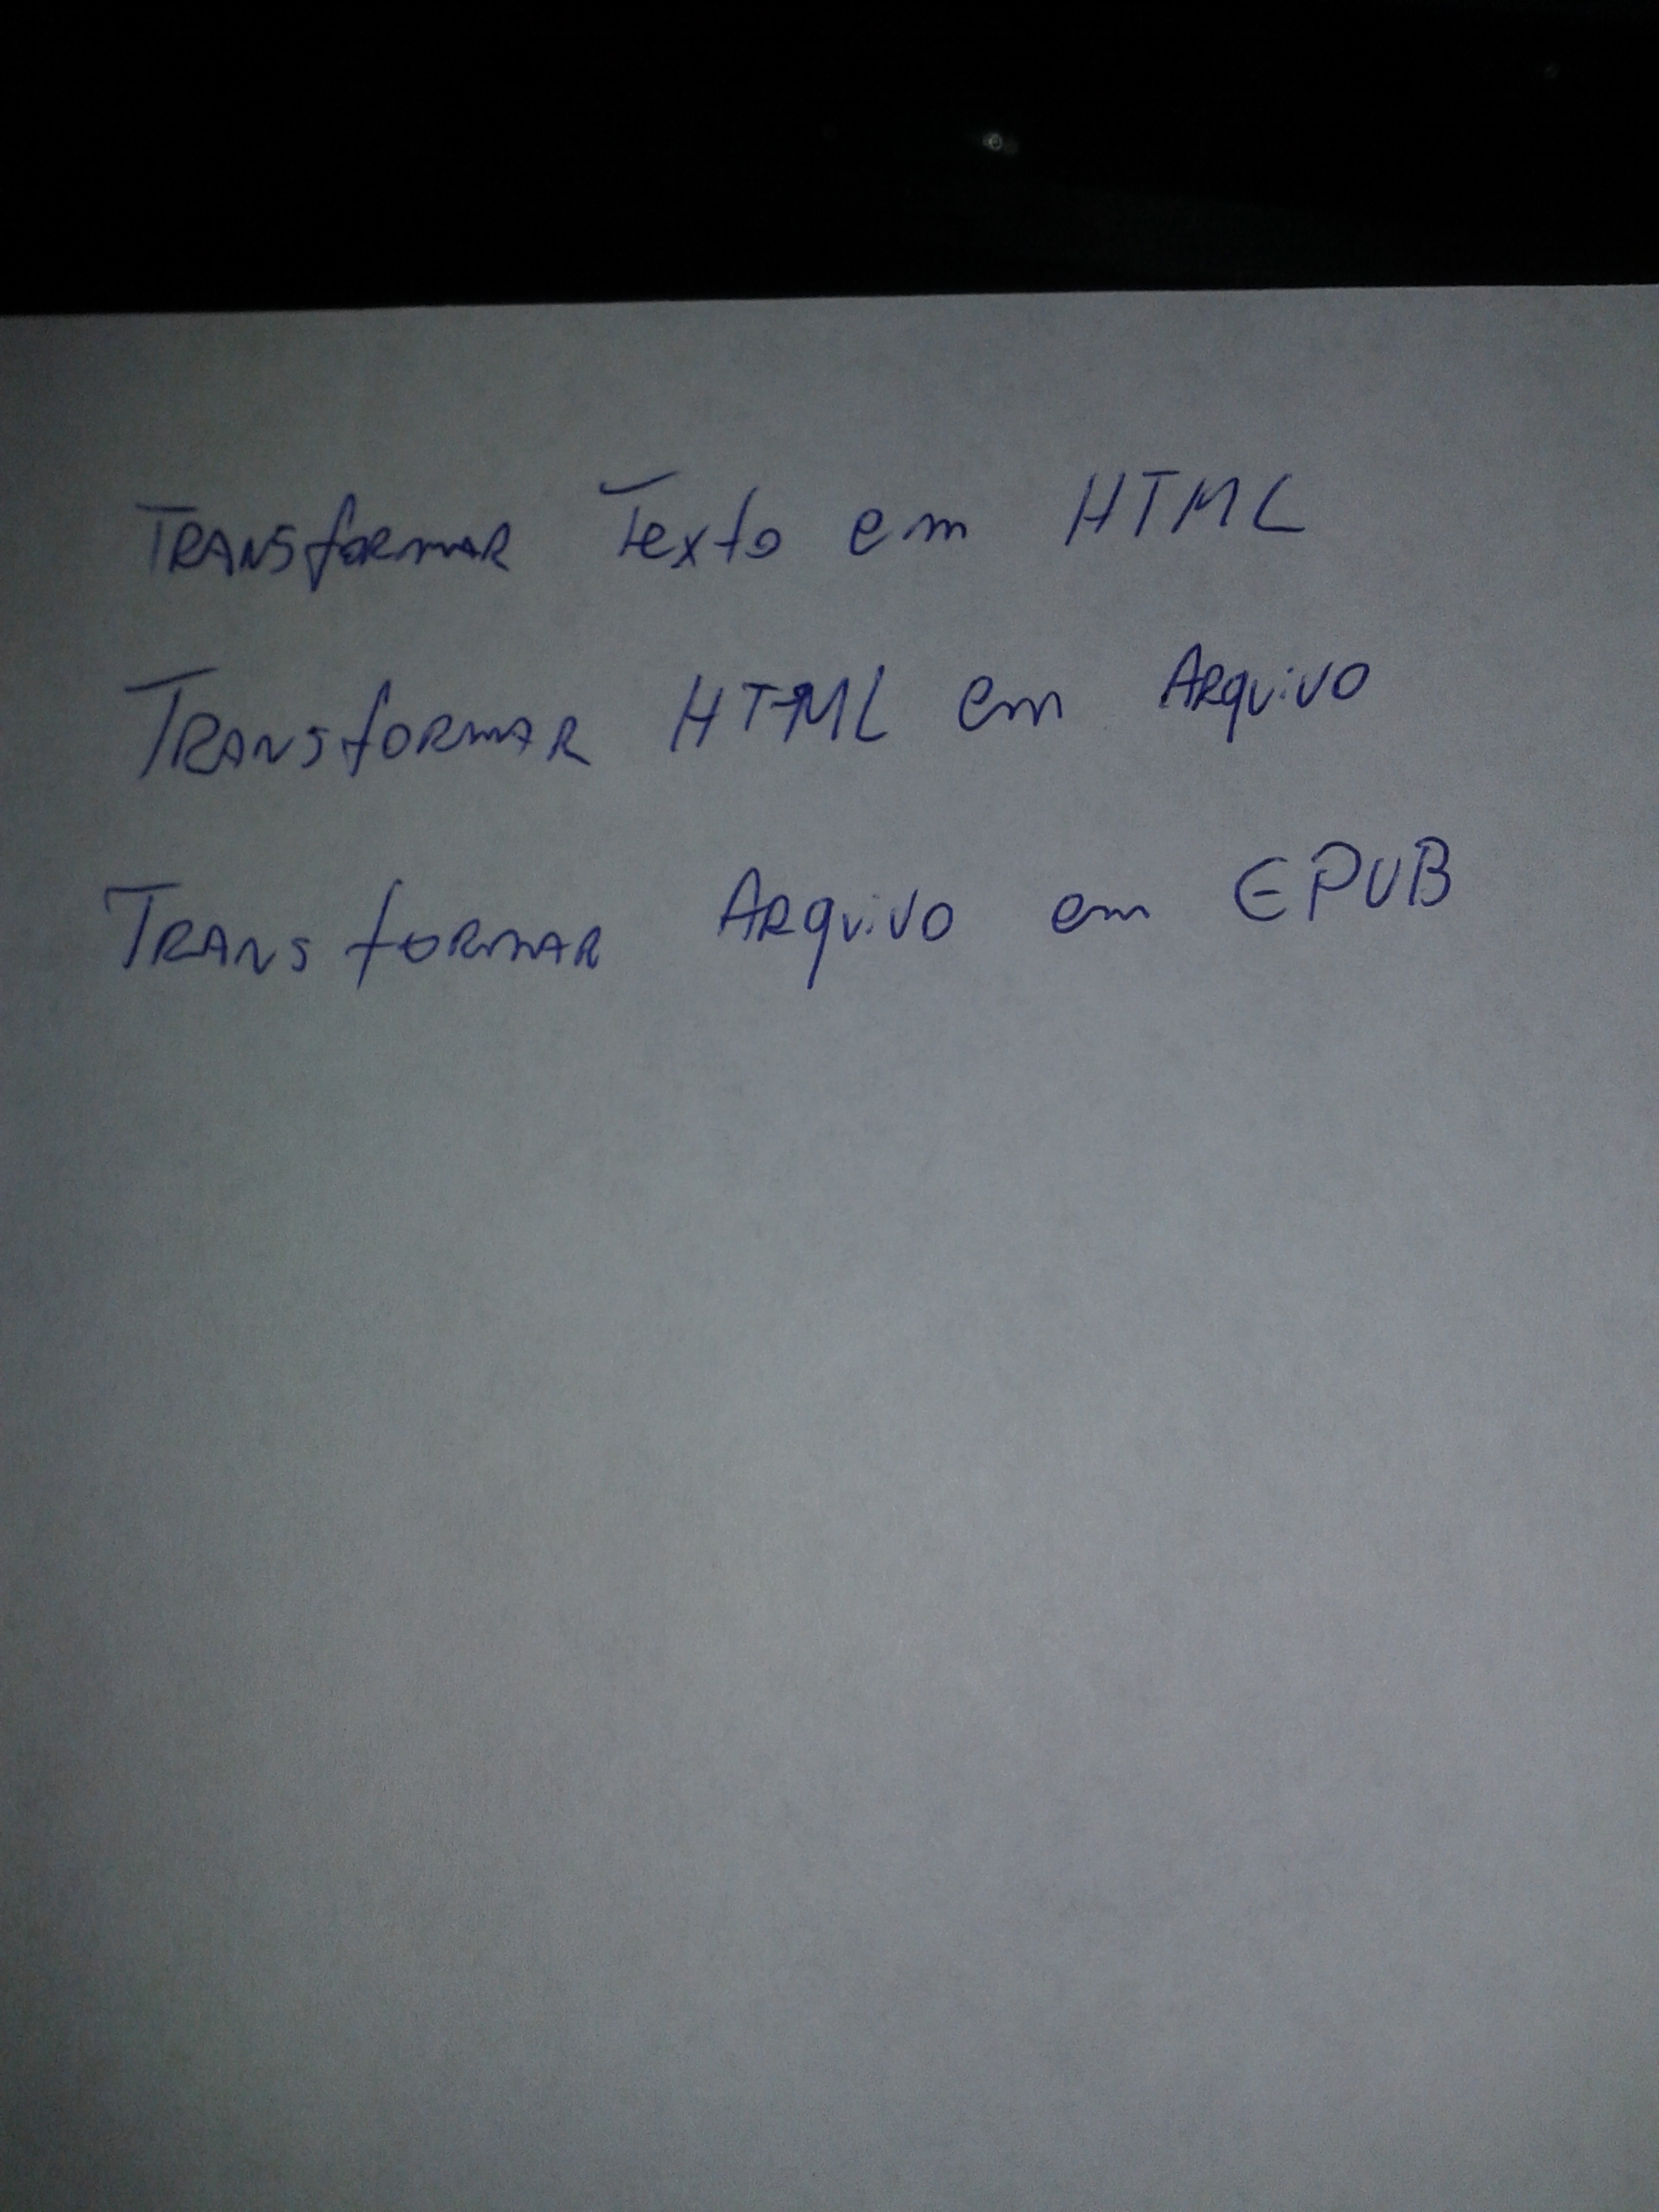 Transformar Texto em HTML
Transformar HTML em Arquivo
Transformar Arquivo em EPUB